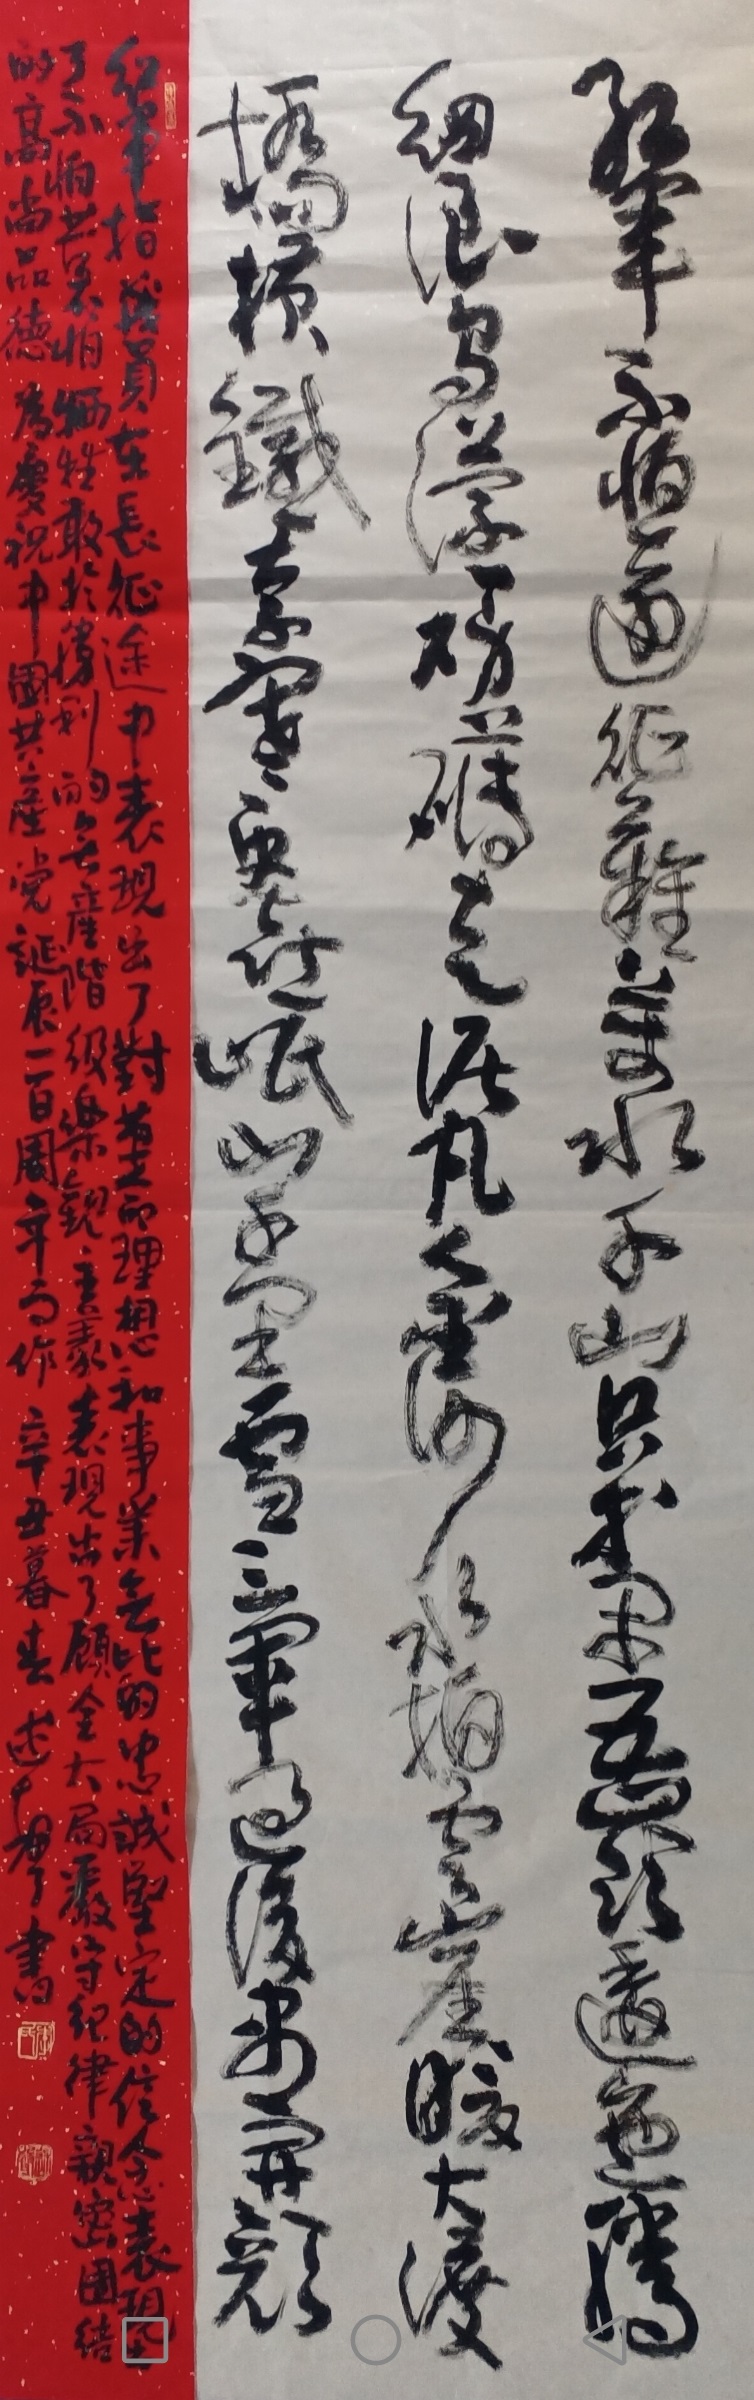 紅軍不怕遠征難萬水千山只等閑五嶺逶迤騰
細浪烏蒙磅礴走泥丸金沙水拍雲崖暖大渡
橋橫鐵索寒更喜岷山千里雪三軍過後盡開顏
紅軍指戰員在長征途中表現出了對革命理想和事業無比的忠誠堅定的信念表現
了不怕苦不怕犧牲敢於勝利的無產階級樂觀主義表現出了顧全大局嚴守紀律親密團結
的高尚品德為慶祝中國共產党誕辰一百周年而作辛丑暮春 書